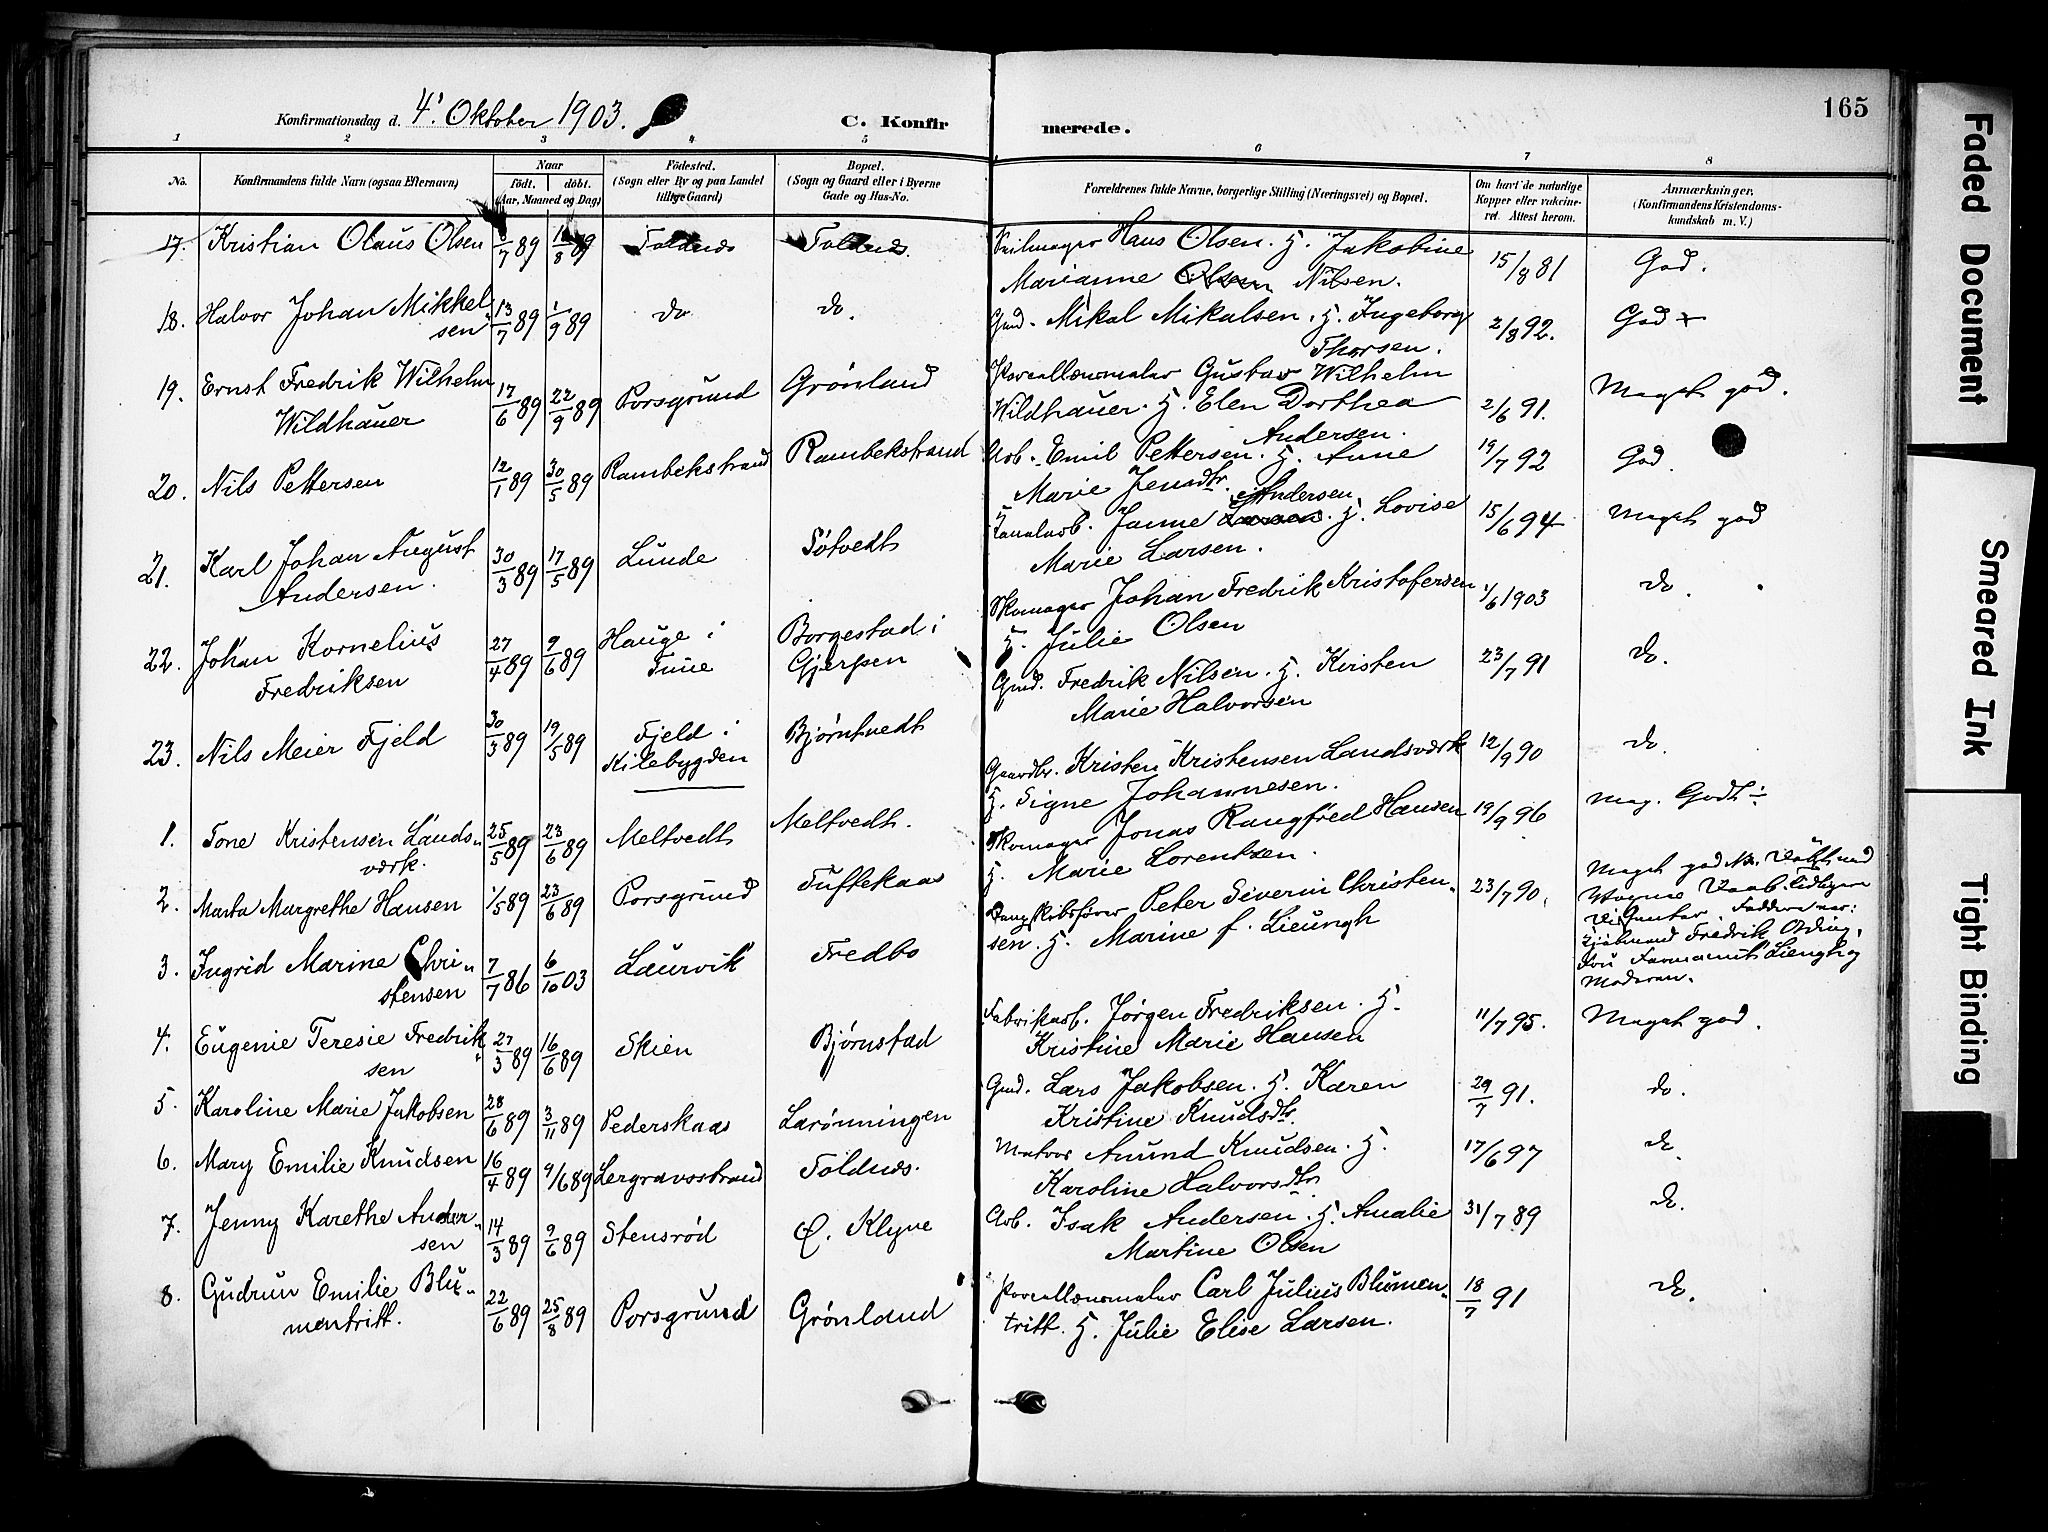 165
Konfirmationsdag d. 4' Oktober 1903.
C. Konfirmerede.
1 2 3 4 5 6 7 8
No. Konfirmandens fulde Navn (ogsaa Efternavn) Naar født, døbt. (Aar, Maaned og Dag) Fødested. (Sogn eller By og paa Landet tillige Gaard) Bopæl. (Sogn og Gaard eller i Byerne Gade og Hus-No. Forældrenes fulde Navne, borgerlige Stilling (Næringsvei) og Bopæl. Om havt de naturlige Kopper eller vakcineret. Attest herom. Anmærkninger. (Konfirmandens Kristendomskundskab m. V.)
17. Kristian Olaus Olsen /7 89 /8 89 Toldnes Toldnes. Seilmager Hans Olsen. H. Jakobine
Marianne Olsen Nilsen. 15/8 81 God.
18. Halvor Johan Mikkel- 13/7 89 1/9 89 do do. Gmd. Mikal Mikalsen. H. Ingeborg
sen Thorsen. 2/8 92. God
19. Ernst Fredrik Wilhelm 17/6 89 22/9 89 Porsgrund Grønland Porcellænsmaler Gustav Wilhelm
Wildhauer Wildhauer. H. Elen Dorthea 2/6 91. Meget god.
Andersen.
20. Nils Pettersen 12/1 89 30/5 89 Rambekstrand Rambekstrand Arb. Emil Pettersen. H. Anne 19/7 92 God.
Marie Jensdtr.
21. Karl Johan August 30/3 89 17/5 89 Lunde Søtvedt Kanalarb. Janne Larsen Andersen. H. Lovise 15/6 94 Meget god
Andersen. Marie Larsen.
22. Johan Kornelius 27/4 89 9/6 89 Hauge i Borgestad i Skomager Johan Fredrik Kristofersen 1/6 1903 do.
Fredriksen Tune Gjerpen H. Julie Olsen
23. Nils Meier Fjeld 30/3 89 19/5 89 Fjeld i Bjørntvedt Gmd. Fredrik Nilsen. H. Kirsten 23/7 91 do.
Kilebygden Marie Halvorsen
1. Tone Kristensen Lands- 25/5 89 23/6 89 Meltvedt Meltvedt. Gaardbr. Kristen Kristensen Landsværk 12/9 90 do.
værk. H. Signe Johannesen.
2. Marta Margrethe Hansen 1/5 89 23/6 89 Porsgrund Tuftekaas Skomager Jonas Rangfred Hansen 19/9 96 Meg. Godt
H. Marie Lorentzen.
3. Ingrid Marine Chri- 7/7 86 6/10 03 Laurvik Fredbo Peter Severin Christen- 23/7 90. Meget god
stensen sen. H. Marine f. Lieungh
Fredrik
Moderen.
4. Eugenie Teresie Fredrik- 27/3 89 16/6 89 Skien Bjørnstad Fabrikarb. Jørgen Fredriksen. H. 11/7 95. Meget god.
sen Kristine Marie Hansen
5. Karoline Marie Jakobsen 28/6 89 3/11 89 Pederskaas Larønningen Gmd. Lars Jakobsen. H. Karen 29/7 91. do.
Kristine Knudsdtr.
6. Mary Emilie Knudsen 16/4 89 9/6 89 Lergravsstrand Toldnes. Matros Anund Knudsen. H. 17/6 97 do
Karoline Halvorsdtr
7. Jenny Karethe Ander- 14/3 89 9/6 89 Stensrød Ø. Klyve Arb. Isak Andersen. H. Amalie 31/7 89 do.
sen Martine Olsen
8. Gudrun Emilie Blu- 22/6 89 25/8 89 Porsgrund Grønland Porcellænsmaler Carl Julius Blumen- 18/7 91 do.
mentritt. tritt. H. Julie Elise Larsen.
Faded Document
Smeared Ink
Tight Binding